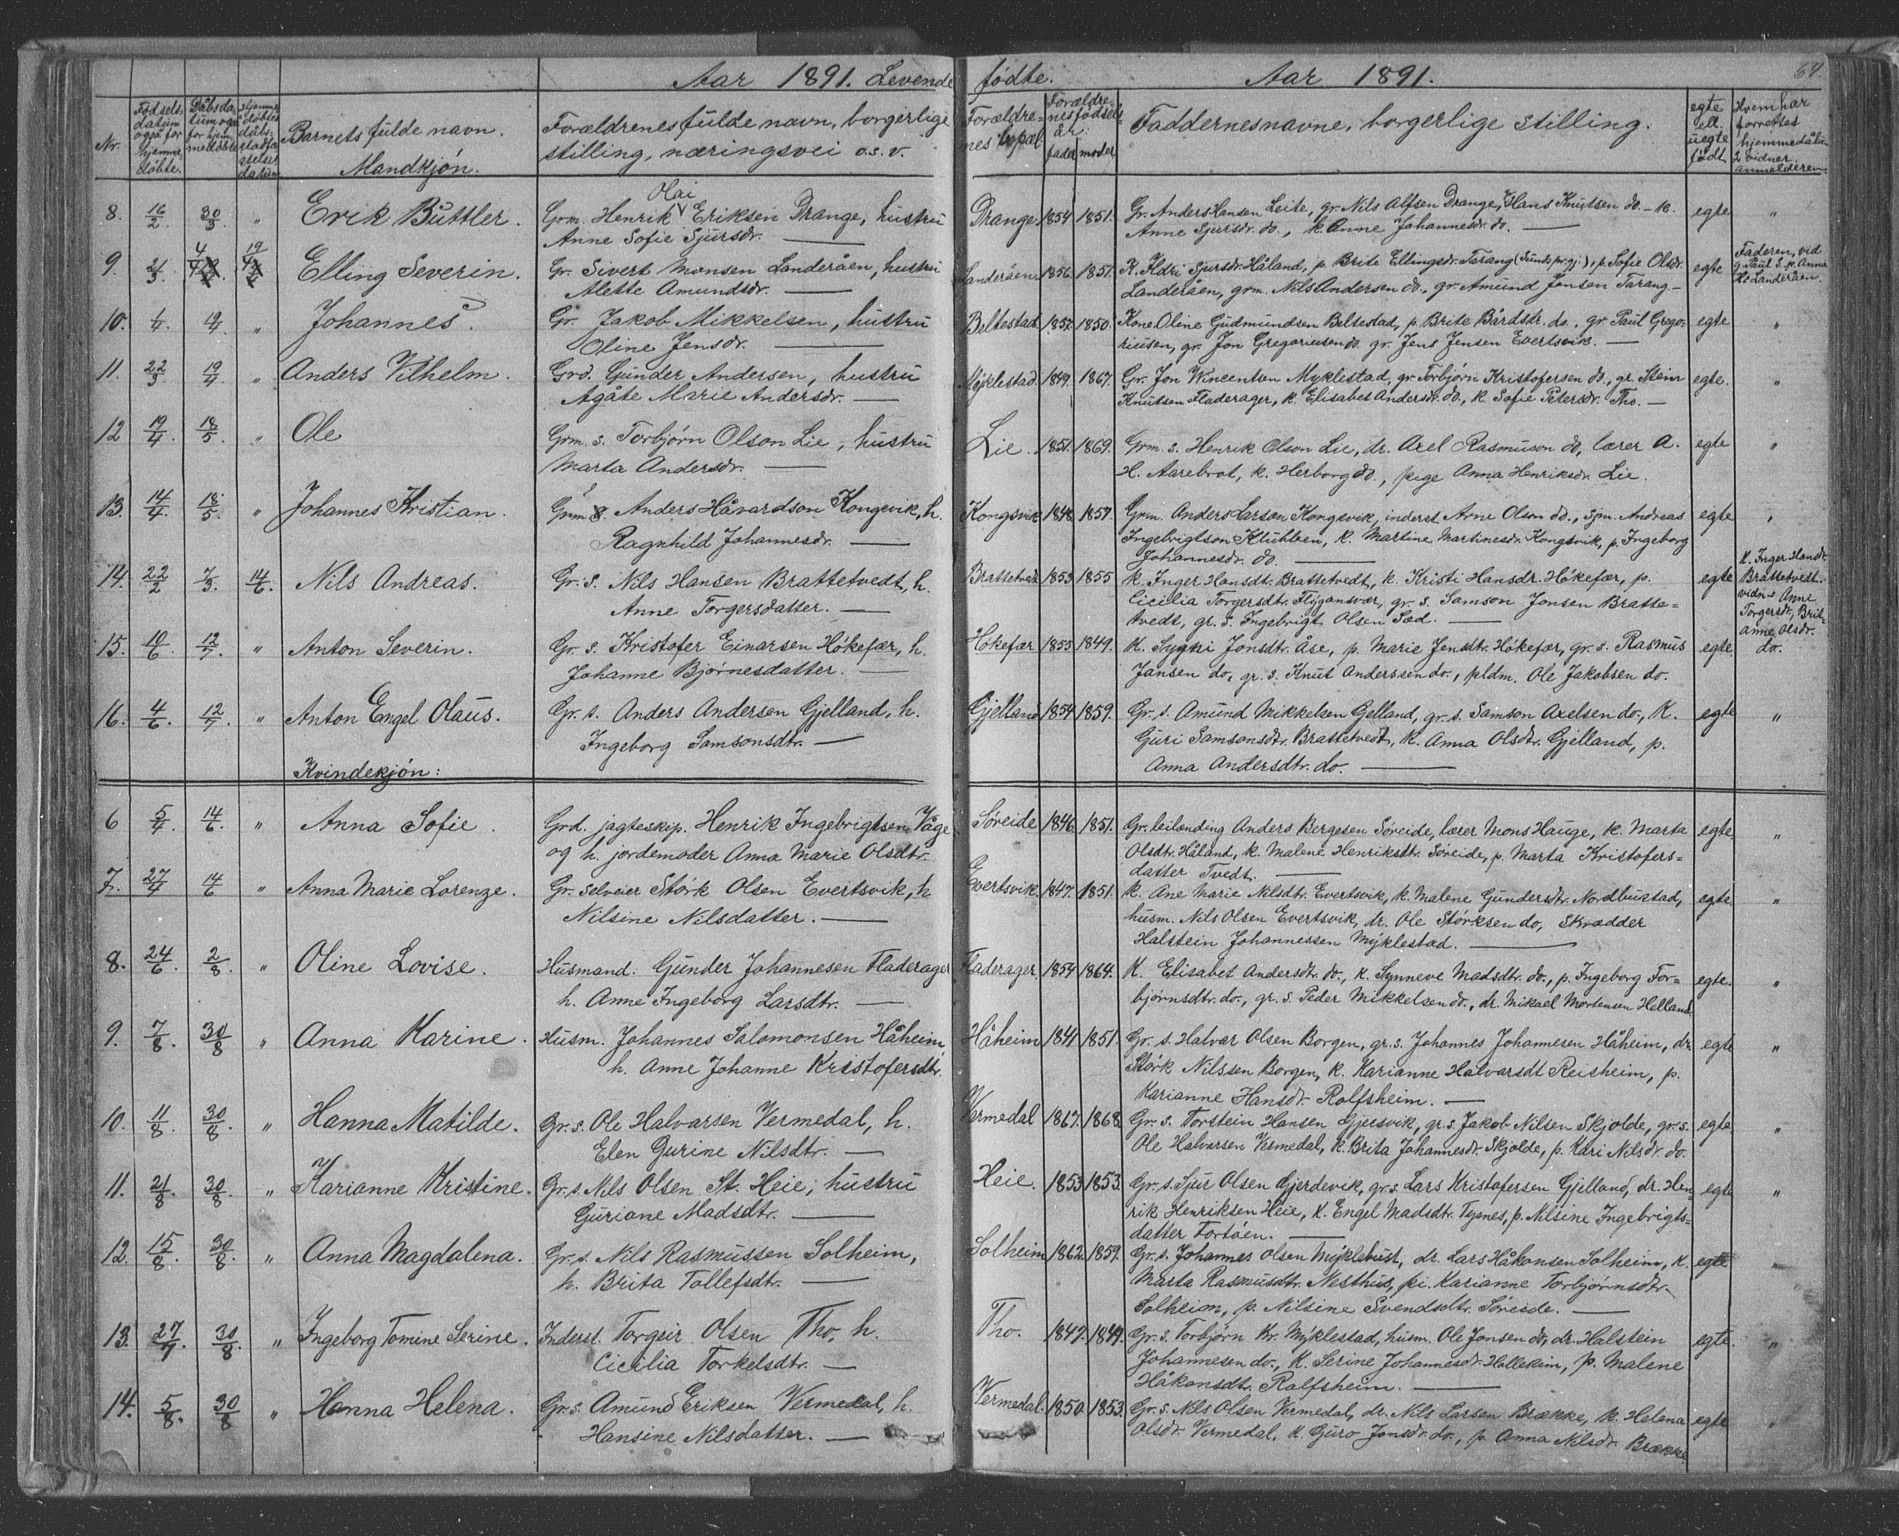 Aar 1891. Levende fødte. Aar 1891. 64.
Nr. Fødselsdatum også for hjemmedøbte. Dåbsdatum og for hjemmedøbte Barnets fulde navn. Mandkjøn. Forældrenes fulde navn, borgerlige stilling, næringsvei o.s.v. Forældrenes bopæl Forældrenes fødsels år. fader moder Faddernes navne, borgerlige stilling. egte ell uegte født Hvem har forrettet hjemmedåb. 2 vidner. anmelderen
8. 16/2 30/3 " Erik Büttler. Grm. Henrik Olai Eriksen Drange, hustru Drange. 1854 1851. Gr. Anders Hansen Leite, gr. Nils Alfsen Drange, Hans Knutsen do. - k. egte "
Anne Sofie Sjursdr. — Anne Sjursdr. do., k. Anne Johannesdr. do. —
9. 21/3 4/4 19/4 Elling Severin. Gr. Sivert Monsen Landeråen, hustru Landeråen 1856. 1857. K. Kldri Sjursdr. Håland, p. Brite Ellingsdr. Tarang, p. Sofie Olsdr. egte Faderen, vid
Alette Amundsdr. — Landeråen, grm. Nils Andersen do., gr. Amund Jensen Tarang - g. Paul S. p. Anna Landeråen.
10. 1/4 19/4 " Johannes. Gr. Jakob Mikkelsen, hustru Beltestad. 1852. 1850. Kone Oline Gudmundsen Beltestad, p. Brite Bårdsdr. do., gr Paul Grego- egte "
Oline Jensdr. — riusen, gr. Jon Gregoriusen do. gr. Jens Jensen Evertsvik. —
11. 22/3 19/4 " Anders Vilhelm. Grd. Gunder Andersen, hustru Myklestad. 1849. 1867. Gr. Jon Wincentsen Myklestad, gr Torbjørn Kristofersen do., gr. Steinr egte. "
Agåte Marie Andersdr. — Knutsen Fladerager, k. Elisabet Andersdr. do., k. Sofie Petersdr. Tho. —
12 19/4 18/5 " Ole Grm. s. Torbjørn Olson Lie, hustru Lie. 1851. 1869. Grm. s. Henrik Olson Lie, dr. Axel Rasmuson do, lærer A. egte "
Marta Andersdr. — H. Aarebrot, k. Herborg do., pige Anna Henriksdr. Lie.
13. 14/4 18/5 " Johannes Kristian. Grm s. Anders Håvardson Kongsvik, h. Kongsvik 1848. 1857. Grm. Anders Larson Kongsvik, inderst Arne Olson do., sjm. Andreas egte "
Ragnhild Johannesdr. — Ingelvigtson Klubben, k. Martine Martinesdr. Kongsvik, p. Ingeborg
Johannesdr. do. —
14. 22/2 7/3. 14/6. Nils Andreas. Gr. s. Nils Hansen Brattetvedt, h. Brattetvedt 1853 1855 K. Inger Hansdt. Brattetvedt, k. Kristi Hansdr. Høkefær, p. egte K. Inger Hansdr.
Anne Torgersdatter. — Cicilia Torgersdtr. Fløgansvær, gr. s. Samson Jonsen Bratte- Brattetvedt. vidne Anne
tvedt, gr. s. Ingebrigt Olsen Sæd. — Torgersdr, Brit- anne Olsdr. do.
15. 10/6 12/7. " Anton Severin. Gr. s. Kristofer Einarsen Høkefær, h. Høkefær 1855 1849. K. Sygni Jonsdt. Åse, p. Marie Jensdtr. Høkefær, gr. s. Rasmus egte.
Johanne Bjørnesdatter. — Jansen do, gr. s. Knut Anderssen do., pldm. Ole Jakobsen do.
16. 4/6 12/7. " Anton Engel Olaus. Gr. s. Anders Andersen Gjelland, h. Gjelland 1854 1859. Gr. s. Amund Mikkelsen Gjelland, gr. s. Samson Axelsen do., K. egte "
Ingeborg Samsonsdtr. — Guri Samsonsdtr. Brattetvedt, K. Anna Olsdtr. Gjelland, p.
Anna Andersdtr. do. —
Kvindekjøn:
6 5/4. 14/6. " Anna Sofie. Grd. jagteskip. Henrik Ingebrigtsen Våge Søreide 1846. 1851. Gr. leilending Anders Bergesen Søreide, lærer Mons Hauge, k. Marta egte "
og h. jordemoder Anna Marie Olsdtr. Olsdtr. Håland, k. Malene Henriksdtr. Søreide, p. Marta Kristofers-
datter Tvedt. —
7. 27/4 14/6 " Anna Marie Lorenze. Gr. selveier Størk Olsen Evertsvik, h Evertsvik. 1847. 1851. K. Ane Marie Nilsdtr. Evertsvik, k. Malene Gundersdtr. Nordbustad, egte "
Nilsine Nilsdatter. — husm. Nils Olsen Evertsvik, dr. Ole Størksen do, Skrædder
Halstein Johannessen Myklestad. —
8. 24/6. 2/8. " Oline Lovise. Husmand. Gunder Johannesen Fladerager Fladerager 1854 1864. K. Elisabet Andersdtr. do., k. Synneve Madsdtr. do., p. Ingeborg Tor- egte. "
h. Anne Ingeborg Larsdtr. — bjørnsdtr. do., gr. s. Peder Mikkelsen do., dr. Mikael Mortensen Helland.
9. 7/8. 30/8 " Anna Karine. Husm. Johannes Salomonsen Håheim Håheim 1841 1851. Gr. s. Halvor Olsen Borgen, gr. s. Johannes Johannesen Håheim, dr. egte "
h. Anne Johanne Kristofersdtr. Størk Nilssen Borgen, k. Karianne Halvarsdt Reisheim, p.
Karianne Hansdr. Rolfsheim. —
10. 11/8. 30/8 " Hanna Matilde. Gr. s. Ole Halvarsen Vermedal, h. Vermedal 1867. 1868. Gr. s. Torstein Hansen Gjersvik, gr. s. Jakob Nilsen Skjolde, gr. s. egte "
Elen Gurine Nilsdtr. — Ole Halvarsen Vermedal, k. Brita Johannesdr. Skjolde, p. Kari Nilsdr. do.
11. 21/8 30/8 " Karianne Kristine. Gr. s. Nils Olsen St. Heie, hustru Heie. 1853. 1853. Gr. s. Sjur Olsen Gjerdevik, gr. s. Lars Kristofersen Gjelland, dr. Hen- egte "
Guriane Madsdtr. — rik Henriksen Heie, K. Engel Madsdtr. Tysnes, p. Nilsine Ingebrigts-
datter Tortøen. —
12. 15/8 30/8 " Anna Magdalena. Gr. s. Nils Rasmussen Solheim, Solheim 1862. 1859. Gr. s. Johannes Olsen Myklebust, dr. Lars Håkonsen Solheim, K. egte "
h. Brita Tollefsdtr. — Marta Rasmusdtr. Nesthus, pi. Karianne Torbjørnsdtr.
Solheim, p. Nilsine Svendsdtr. Søreide. —
13. 27/7 30/8 " Ingeborg Tomine Serine. Inderst. Torgeir Olsen Tho, h. Tho. 1847. 1849. Gr. s. Torbjørn Kr. Myklestad, husm. Ole Jonsen do, dr. Halstein egte. "
Cicilia Torkelsdtr. — Johannesen do., K. Serine Johannesdr. Hallekim, p. Malene
Håkonsdtr. Rolfsheim. —
14. 5/8. 30/8 " Hanna Helena. Gr. s. Amund Eriksen Vermedal, h. Vermedal. 1850. 1853. Gr. s. Nils Olsen Vermedal, dr. Nils Larsen Brække, k. Helena egte "
Hansine Nilsdatter. — Olsdr. Vermedal, K. Guro Jonsdr. do., p. Anna Nilsdr. Brække